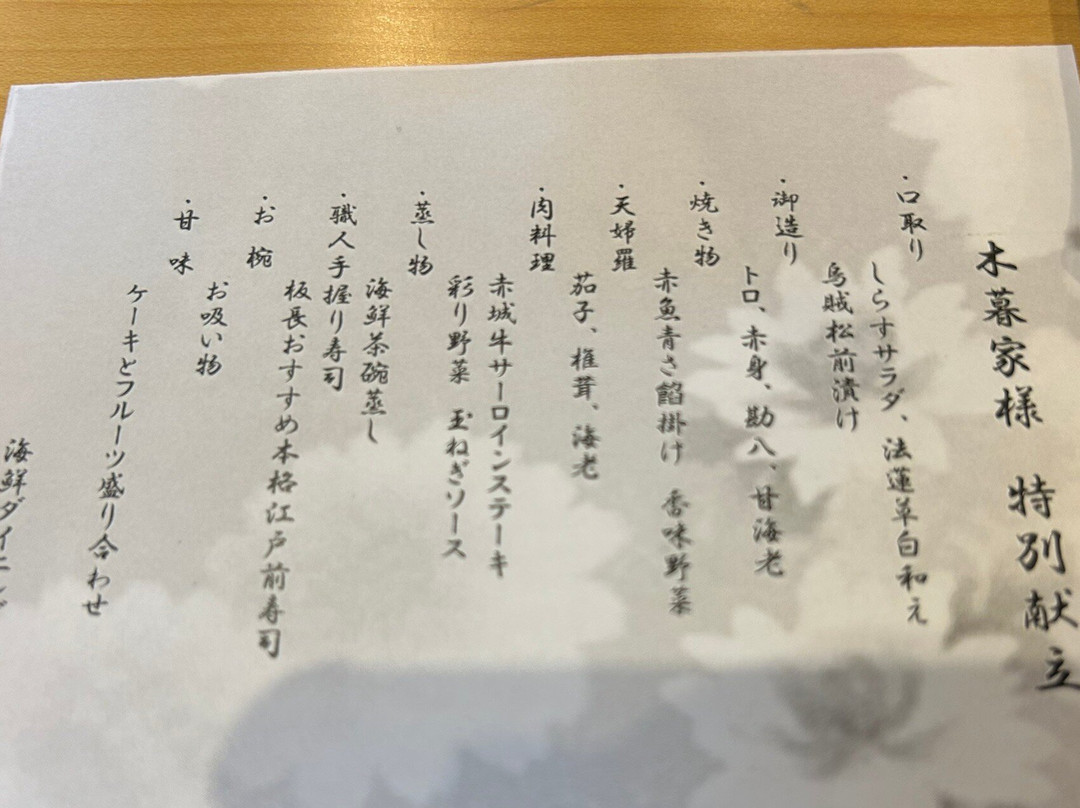 木暮家様 特別献立
・口取り
しらすサラダ、法蓮草白和え
烏賊松前漬け
・御造り
トロ、赤身、勘八、甘海老
・焼き物
赤魚青さ餡掛け 香味野菜
・天婦羅
茄子、椎茸、海老
・肉料理
赤城牛サーロインステーキ
彩り野菜 玉ねぎソース
・蒸し物
海鮮茶碗蒸し
・職人手握り寿司
板長おすすめ本格江戸前寿司
・お椀
お吸い物
・甘味
ケーキとフルーツ盛り合わせ
海鮮ダイニング